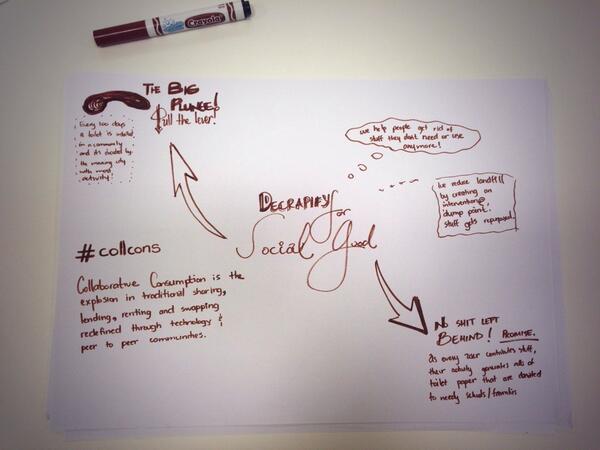 Crayola
THE BIG
PLUNGE!
Pull the lever!
Every 100 days
a toilet is
in a community
and it's decided by
the
with most
activity!
we help people get rid of
stuff they don't need or use
anymore!
we reduce landfill
by creating an
intervention@
dump point.
stuff gets repurposed.
DECRAPIFY
for
Social Good
#collcons
Collaborative Consumption is the
explosion in traditional sharing,
lending, renting and swapping
redefined through technology &
peer to peer communities.
NO SHIT LEFT
BEHIND! PROMISE.
as every user contributes stuff,
their activity generates rolls of
toilet paper that are donated
to needy schools/families